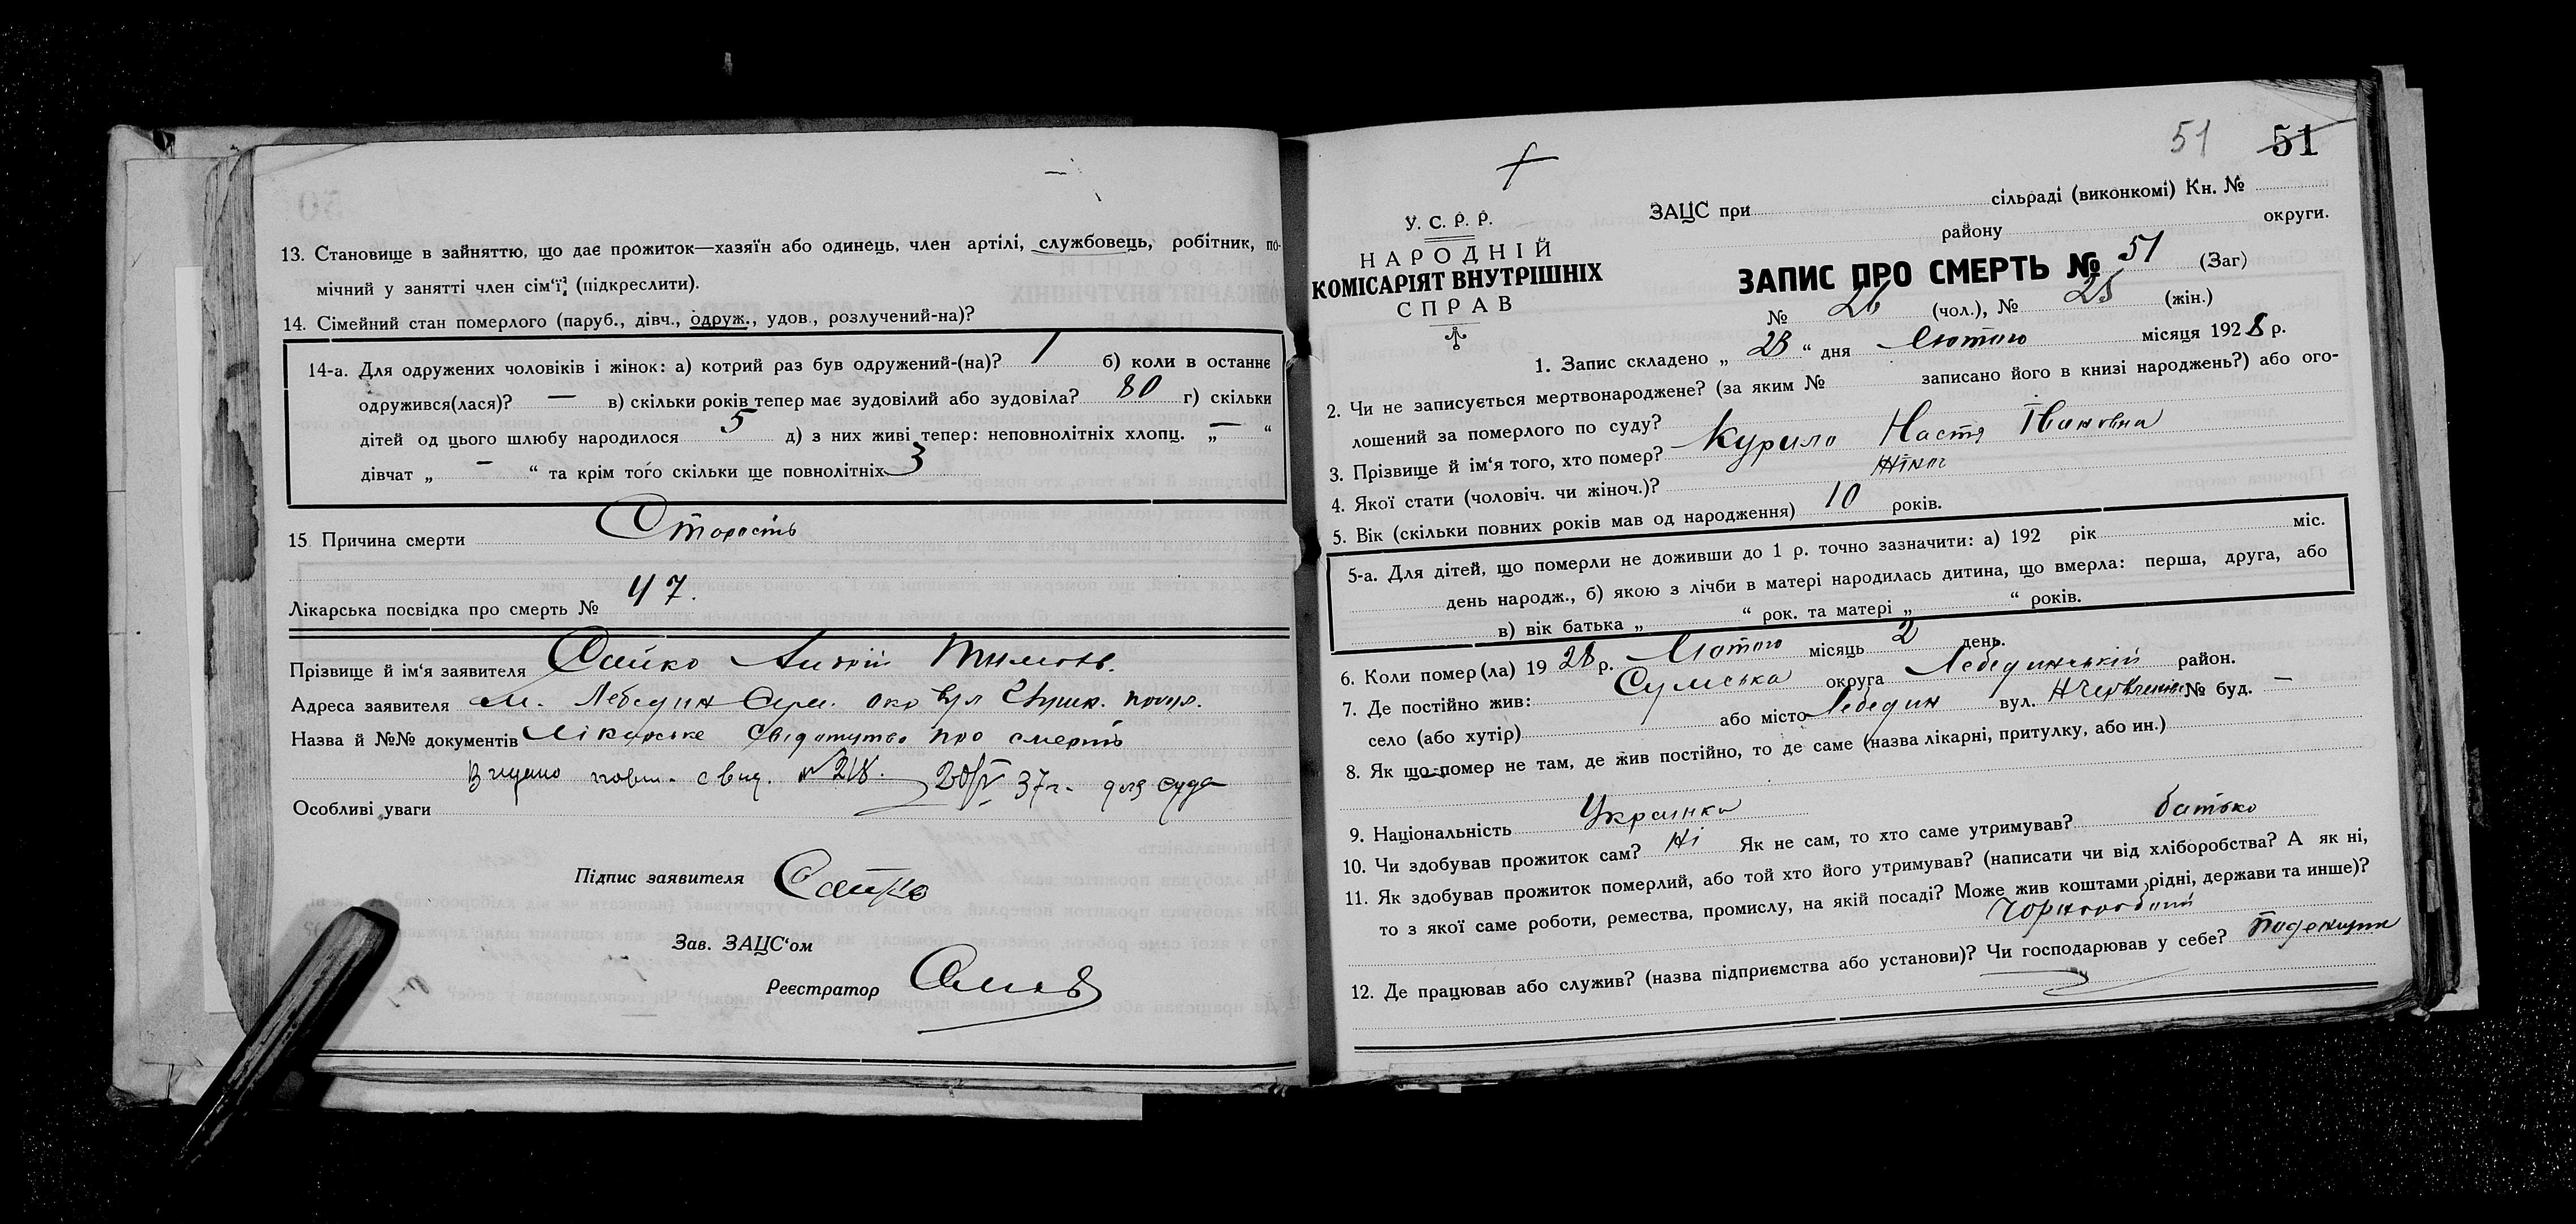 13. Становище в зайняттю, що дає прожиток—хазяїн або одинець, член артілі, службовець, робітник, по-
мічний у занятті член сім'ї, (підкреслити).
14. Сімейний стан померлого (паруб., дівч., одруж., удов., розлучений-на)?
14-а. Для одружених чоловіків і жінок: а) котрий раз був одружений-(на)? 1 б) коли в останнє
одружився(лася)? — в) скільки років тепер має зудовілий або зудовіла? 80 г) скільки
дітей од цього шлюбу народилося 5 д) з них живі тепер: неповнолітніх хлопц. „ — “
дівчат „ - “ та крім того скільки ще повнолітніх 3
15. Причина смерти Старость
Лікарська посвідка про смерть № 47.
Прізвище й ім'я заявителя Сайко Андрій
Адреса заявителя м. Лебедин вул
Назва й №№ документів Лікарське про смерть
Видано повт. свид. № 218. 20/IV 37 г. для суда
Особливі уваги
Підпис заявителя Сайко
Зав. ЗАЦС'ом
Реєстратор
51 51
У. С. Р. Р.
НАРОДНІЙ
КОМІСАРІЯТ ВНУТРІШНІХ
СПРАВ
ЗАЦС при сільраді (виконкомі) Кн. №
району округи.
ЗАПИС ПРО СМЕРТЬ № 51 (Заг)
№ 26 (чол.), № 25 (жін.)
1. Запис складено „ 23 “ дня Лютого місяця 1928 р.
2. Чи не записується мертвонароджене? (за яким № записано його в книзі народжень?) або ого-
лошений за померлого по суду?
3. Прізвище й ім'я того, хто помер? Курило Настя Івановна
4. Якої стати (чоловіч. чи жіноч.)? жіноч
5. Вік (скільки повних років мав од народження) 10 років.
5-а. Для дітей, що померли не доживши до 1 р. точно зазначити: а) 192 рік міс.
день народж., б) якою з лічби в матері народилась дитина, що вмерла: перша, друга, або
в) вік батька „ “ рок. та матері „ “ років.
6. Коли помер(ла) 1928 р. Лютого місяць 2 день.
7. Де постійно жив: Сумська округа Лебединській район.
село (або хутір) або місто Лебедин вул. № буд. —
8. Як що помер не там, де жив постійно, то де саме (назва лікарні, притулку, або ин.)
9. Національність Украинка
10. Чи здобував прожиток сам? Ні Як не сам, то хто саме утримував? батько
11. Як здобував прожиток померлий, або той хто його утримував? (написати чи від хліборобства? А як ні,
то з якої саме роботи, ремества, промислу, на якій посаді? Може жив коштами рідні, держави та инше)?
Чорноробочий
12. Де працював або служив? (назва підприємства або установи)? Чи господарював у себе? Поденщик